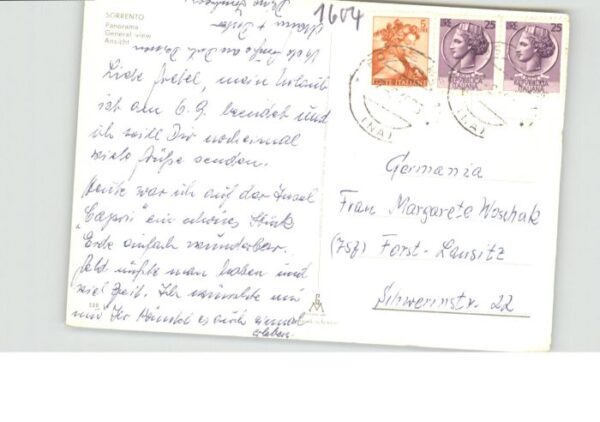 SORRENTO
Panorama
General view
Ansicht
1604
Liebe Gretel, mein Urlaub
ist am 6.9. beendet und
ich will Dir nocheinmal
viele Grüße senden.
Heute war ich auf der Insel
"Capri" ein schönes Stück
Erde einfach wunderbar.
Geld müßte man haben und
viel Zeit. Ich wünschte mir
nur Ihr könntet es auch einmal
erleben.
5
POSTE ITALIANE
LIRE 25
LIRE 25
(NA)
(NA)
Germania
Frau Margarete Woschak
(758) Forst-Lausitz
Schwerinstr. 22